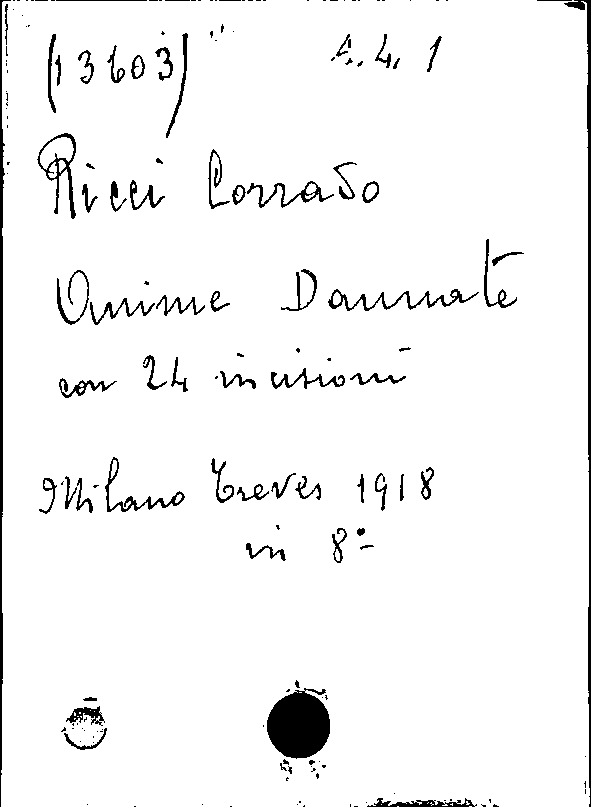 (13603) A.4.1
Ricci Corrado
Anime Dannate
con 24 incisioni
Milano Treves 1918
in 8º